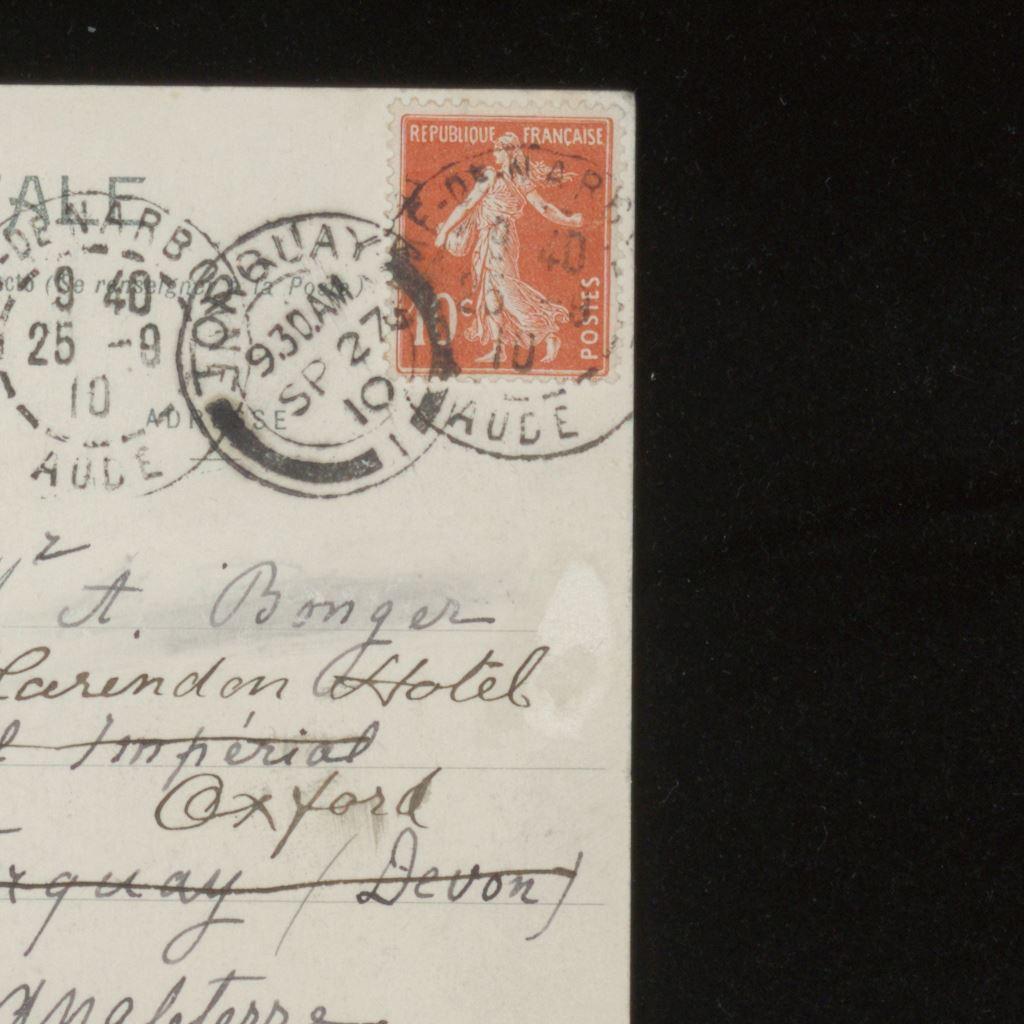 REPUBLIQUE FRANÇAISE
10c
POSTES
ALE
DE-NARB
9 40
25 -9
10
AUDE
(Se renseigner à la Poste)
TORQUAY
9.30 AM
SP 27
10
E-DE-NARB
9 40
25 -9
10
AUDE
ADRESSE
Mr
A. Bonger
Clarendon Hotel
l Impérial
Oxford
rquay (Devon)
Angleterre